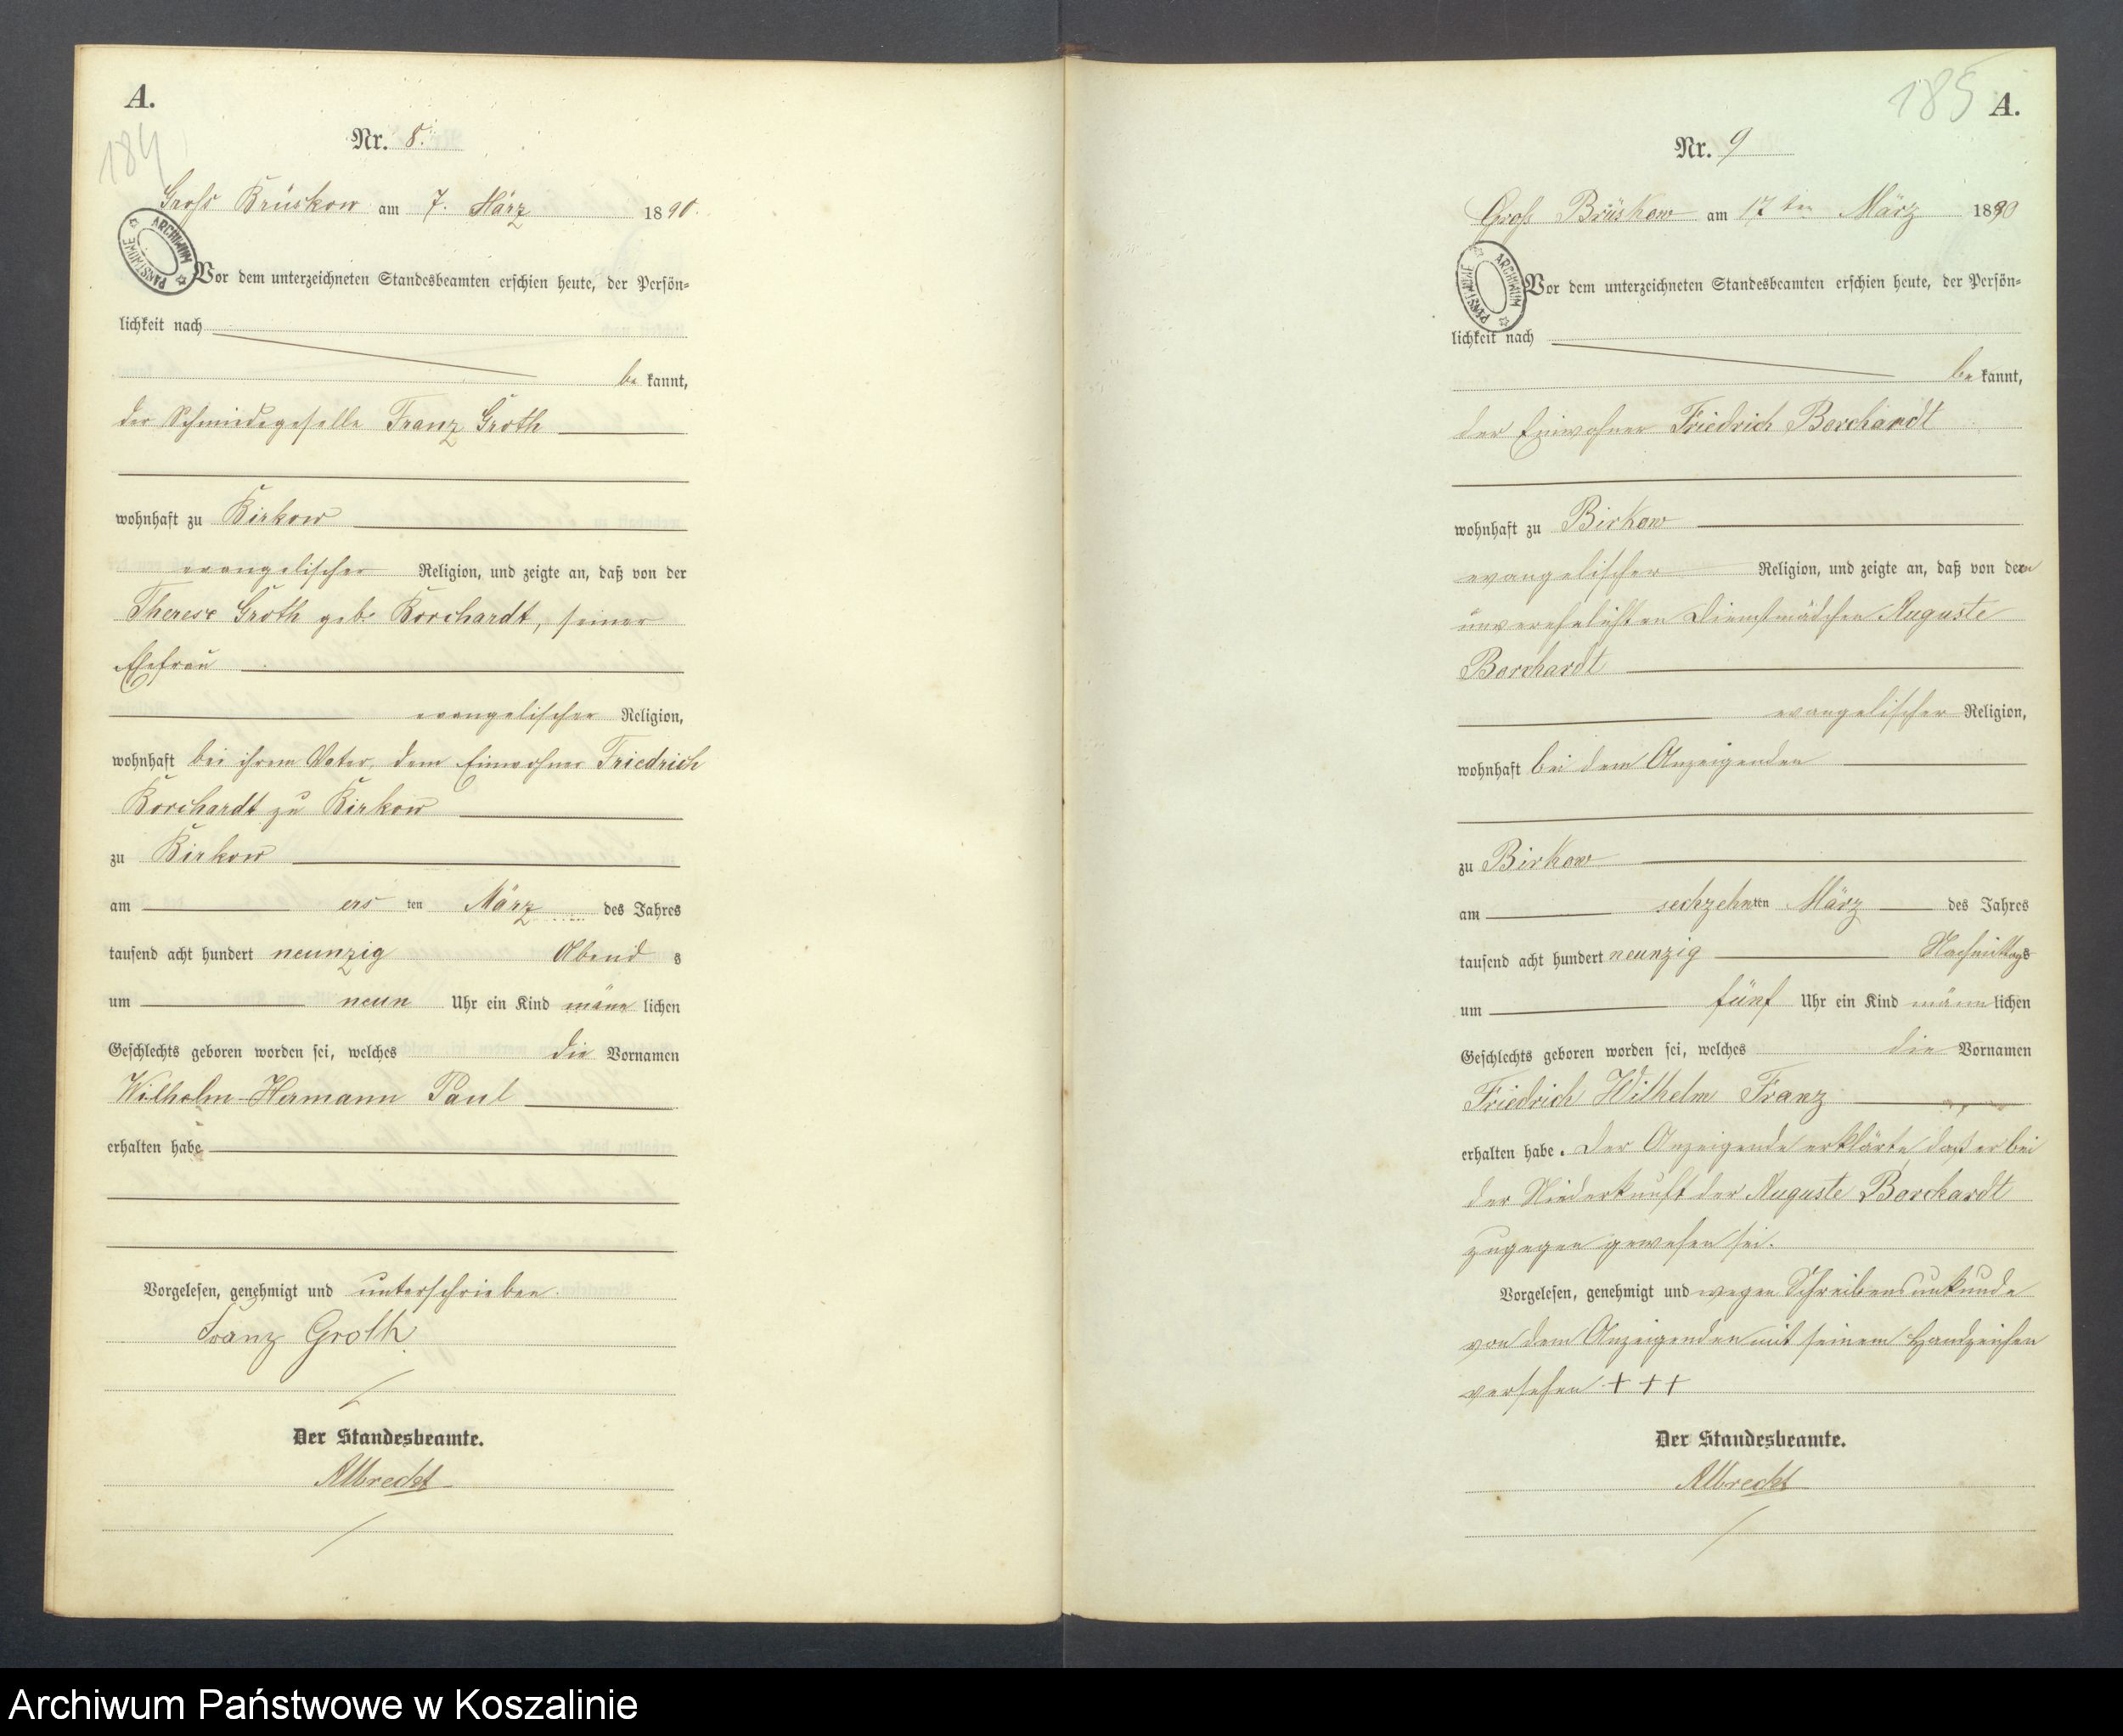 A.
184
Nr. 8.
Gross Brüskow am 7. März 1890.
ARCHIWUM PAŃSTWOWE
Vor dem unterzeichneten Standesbeamten erschien heute, der Persön=
lichkeit nach
be kannt,
der Schmiedegeselle Franz Groth
wohnhaft zu Birkow
evangelischer Religion, und zeigte an, daß von der
Therese Groth geb. Borchardt, seiner
Ehefrau
evangelischer Religion,
wohnhaft bei ihrem Vater, dem Einwohner Friedrich
Borchardt zu Birkow
zu Birkow
am ers ten März des Jahres
tausend acht hundert neunzig Abend s
um neun Uhr ein Kind männ lichen
Geschlechts geboren worden sei, welches die Vornamen
Wilhelm Hermann Paul
erhalten habe
Vorgelesen, genehmigt und unterschrieben.
Franz Groth
Der Standesbeamte.
Albrecht
185
A.
Nr. 9
Groß Brüskow am 17ten März 1890
ARCHIWUM PAŃSTWOWE
Vor dem unterzeichneten Standesbeamten erschien heute, der Persön=
lichkeit nach
be kannt,
der Einwohner Friedrich Borchardt
wohnhaft zu Birkow
evangelischer Religion, und zeigte an, daß von dem
unverehelichten Dienstmädchen Auguste
Borchardt
evangelischer Religion,
wohnhaft bei dem Anzeigenden
zu Birkow
am sechzehnten März des Jahres
tausend acht hundert neunzig Nachmittags
um fünf Uhr ein Kind männ lichen
Geschlechts geboren worden sei, welches die Vornamen
Friedrich Wilhelm Franz
erhalten habe. Der Anzeigende erklärte daß er bei
der Niederkunft der Auguste Borchardt
zugegen gewesen sei.
Vorgelesen, genehmigt und wegen Schreibensunkunde
von dem Anzeigenden mit seinem Handzeichen
versehen +++
Der Standesbeamte.
Albrecht
Archiwum Państwowe w Koszalinie